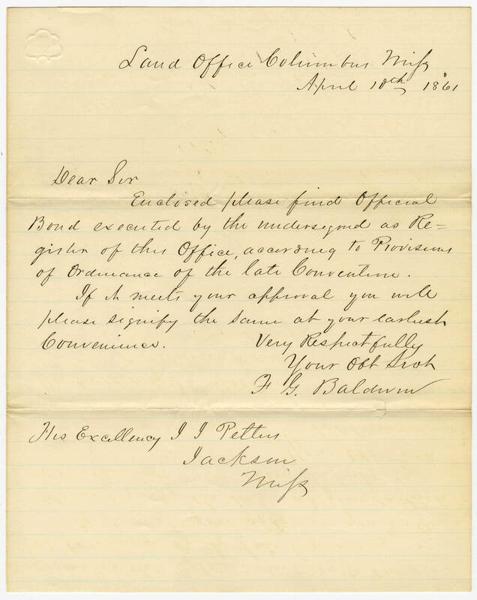 Land Office Columbus Miss
April 10th 1861
Dear Sir
Enclosed please find Official
Bond executed by the undersigned as Re=
gister of this Office, according to Provisions
of Ordinance of the late Convention.
If it meets your approval you will
please signify the same at your earliest
Convenience.
Very Respectfully
Your Obt Svt
F. G. Baldwin
His Excellency J J Pettus
Jackson
Miss